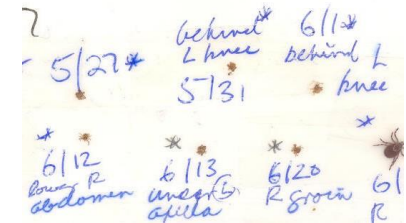 behind*
L knee
5/31
6/1*
behind L
knee
5/27*
*
6/12
lower R
abdomen
*
6/13
under Ⓛ
*
6/20
R groin
*
6/
R